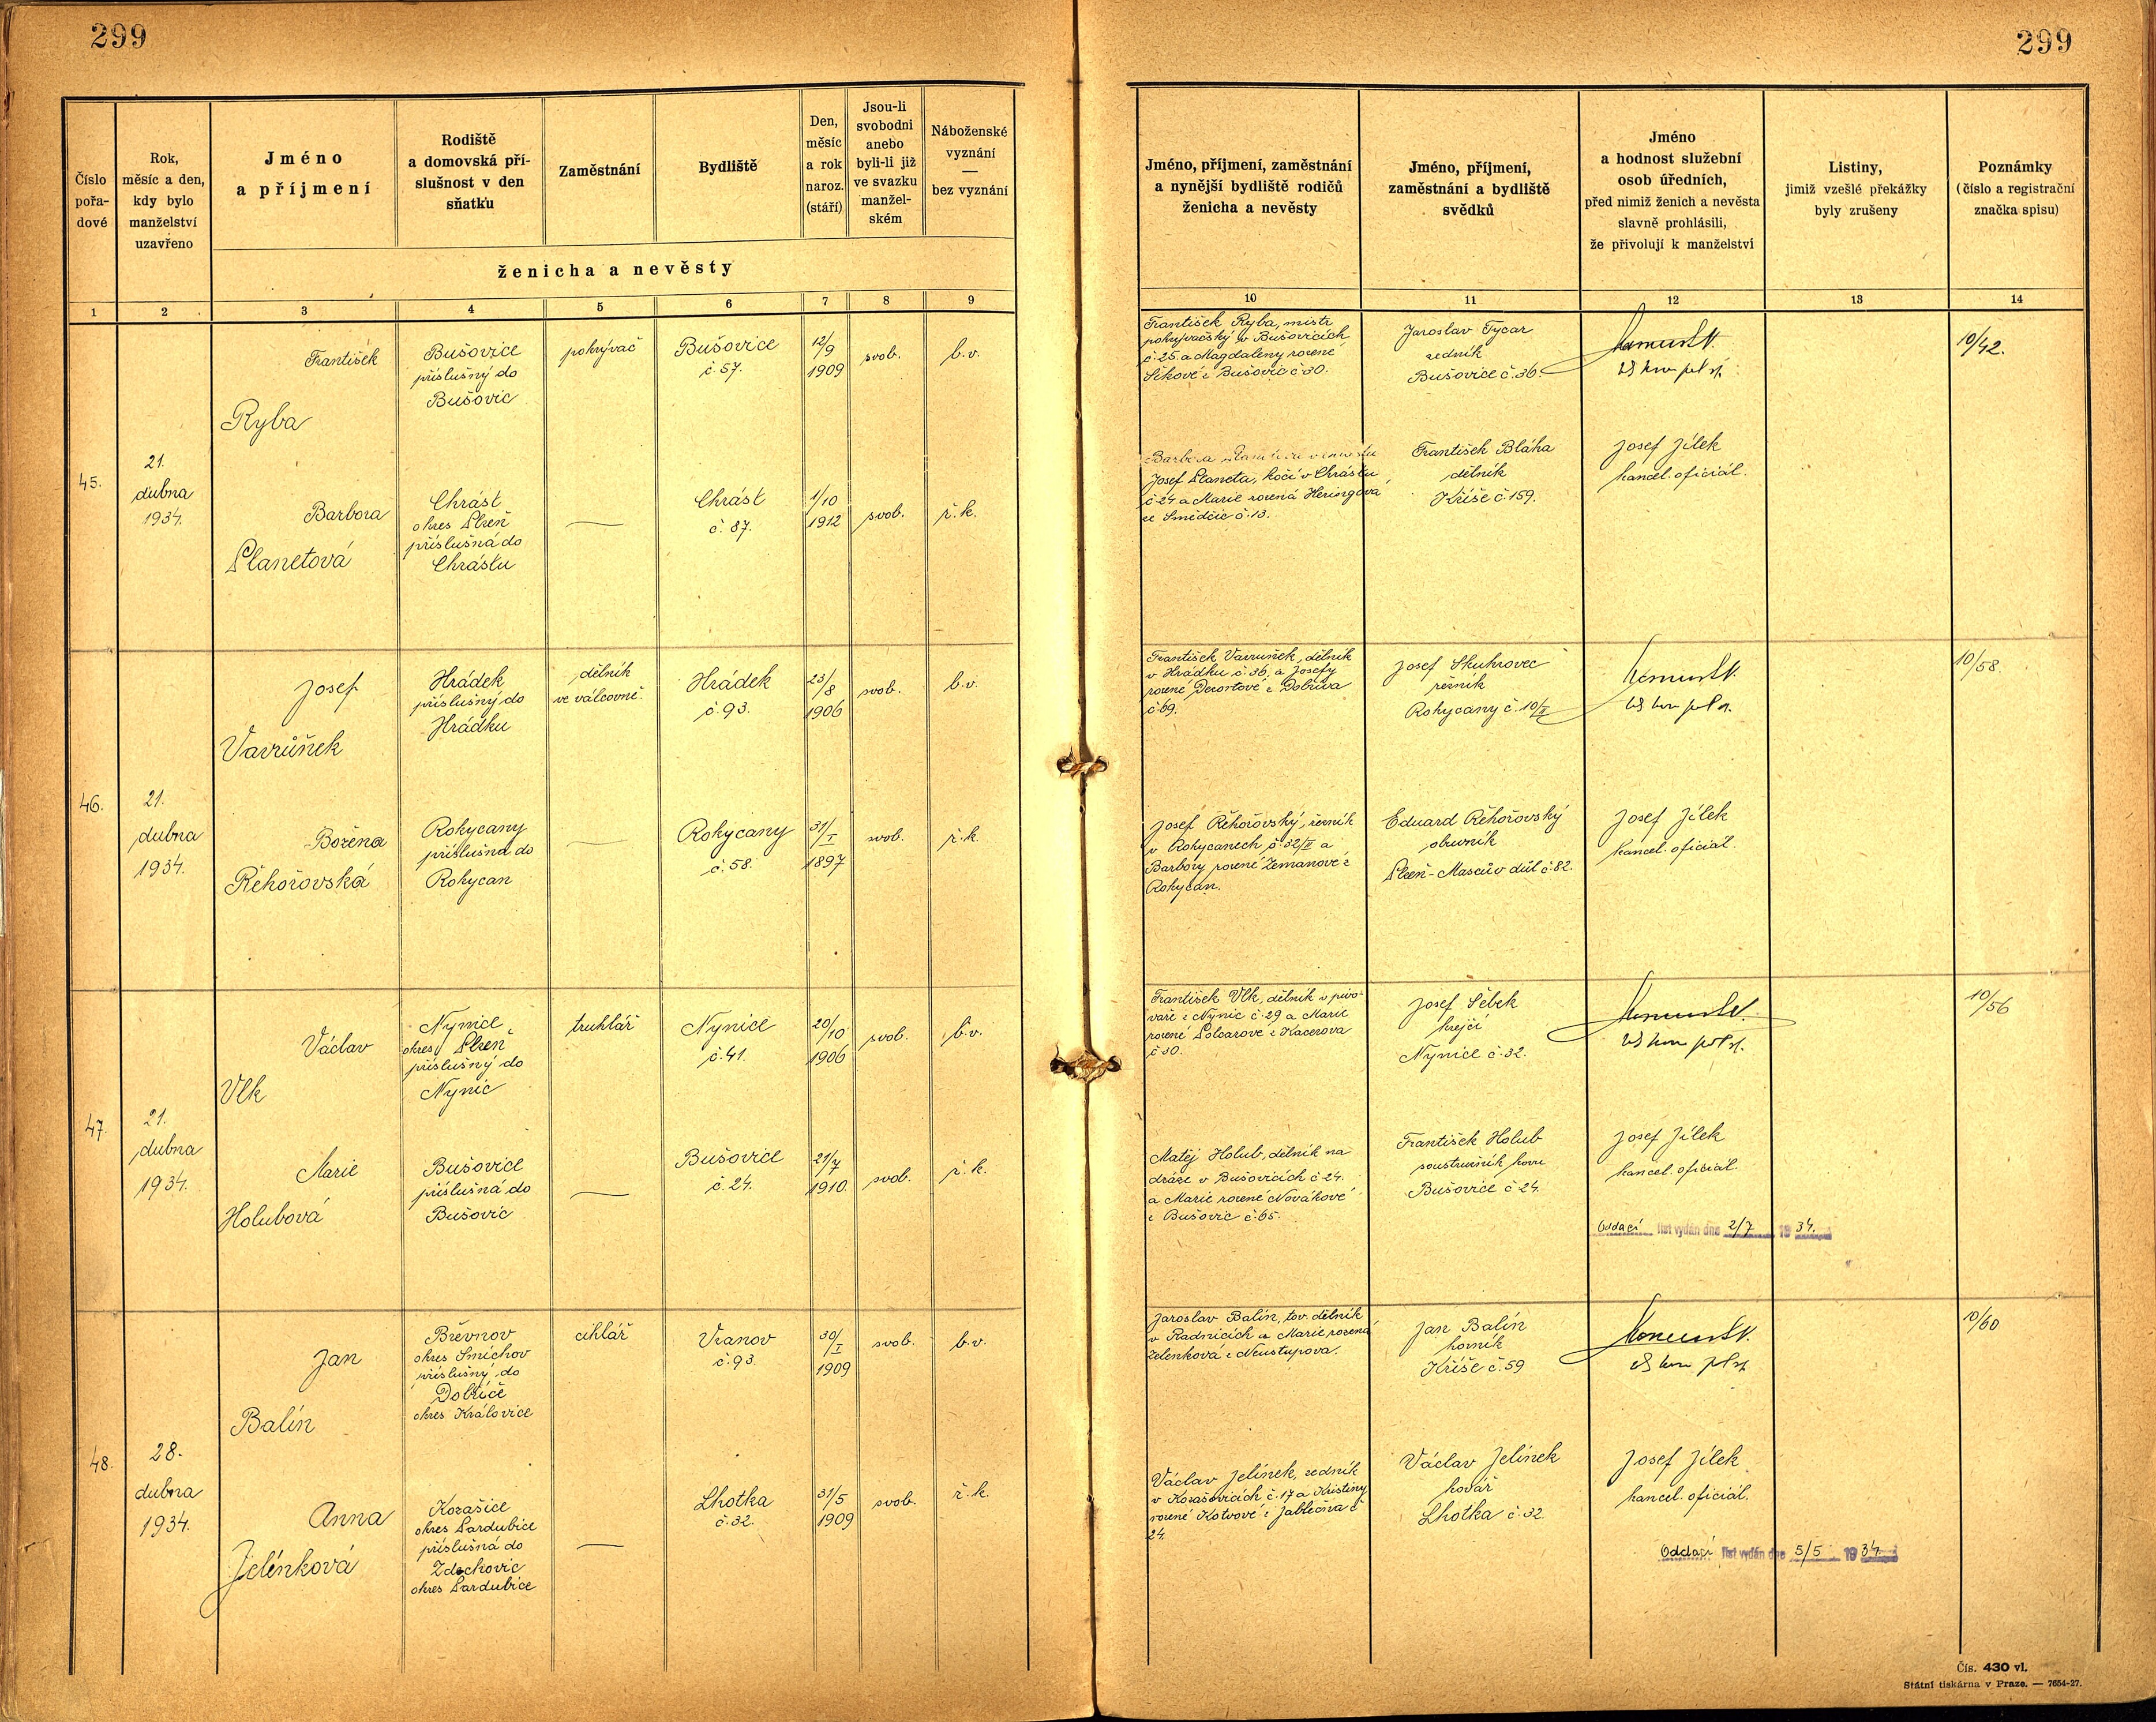 299
299
Číslo pořa-dové
Rok, měsíc a den, kdy bylo manželství uzavřeno
Jméno a příjmení
Rodiště a domovská pří-slušnost v den sňatku
Zaměstnání
Bydliště
Den, měsíc a rok naroz. (stáří)
Jsou-li svobodni anebo byli-li již ve svazku manžel-ském
Náboženské vyznání — bez vyznání
ženicha a nevěsty
Jméno, příjmení, zaměstnání a nynější bydliště rodičů ženicha a nevěsty
Jméno, příjmení, zaměstnání a bydliště svědků
Jméno a hodnost služební osob úředních, před nimiž ženich a nevěsta slavně prohlásili, že přivolují k manželství
Listiny, jimiž vzešlé překážky byly zrušeny
Poznámky (číslo a registrační značka spisu)
1 2 3 4 5 6 7 8 9 10 11 12 13 14
45.
21.
dubna
1934.
František
Ryba
Bušovice
příslušný do
Bušovic
pokrývač
Bušovice
č. 57.
12/9
1909
svob.
b.v.
František Ryba, mistr
pokrývačský v Bušovicích
č. 25. a Magdaleny rozené
z Bušovic č 30.
Jaroslav Tycar
zedník
Bušovice č. 36.
10/42.
Barbora
Planetová
Chrást
okres Plzeň
příslušná do
Chrástu
Chrást
č. 87.
1/10
1912
svob.
ř. k.
Josef Planeta, kočí v Chrástu
č 24 a Marie rozená Heringova
ze Smědčic č. 13.
František Bláha
dělník
Kříše č 159.
Josef Jílek
kancel. oficiál.
46.
21.
dubna
1934.
Josef
Vavruňek
Hrádek
příslušný do
Hrádku
dělník
ve válcovně.
Hrádek
č. 93.
23/8
1906
svob.
b.v.
František Vavruňek, dělník
v Hrádku č. 36, a Josefy
rozené z Dobřiva
č 69.
Josef Skuhrovec
řezník
Rokycany č. 10/II
10/58
Božena
Řehořovská
Rokycany
příslušná do
Rokycan
Rokycany
č. 58.
31/I
1897
svob.
ř. k.
Josef Řehořovský, řezník
v Rokycanech č 32/II a
Barbory rozené Zemanové z
Rokycan.
Eduard Řehořovský
obuvník
Plzeň - důl č. 82.
Josef Jílek
kancel. oficiál.
47.
21.
dubna
1934.
Václav
Vlk
Nynice
okres Plzeň
příslušný do
Nynic
truhlář
Nynice
č. 41.
20/10
1906
svob.
b. v.
František Vlk, dělník v pivo-
vaře z Nynic č 29 a Marie
rozené Polcarové z Kacerova
č 30.
Josef Šebek
krejčí
Nynice č. 32.
10/56
Marie
Holubová
Bušovice
příslušná do
Bušovic
Bušovice
č. 24.
21/7
1910.
svob.
ř. k.
Matěj Holub, dělník na
dráze v Bušovicích č 24.
a Marie rozené Novákové
z Bušovic č. 65.
František Holub
soustružník kovu
Bušovice č 24.
Josef Jílek
kancel. oficiál.
Oddací list vydán dne 2/7 1934.
48.
28.
dubna
1934.
Jan
Balín
Břevnov
okres Smíchov
příslušný do
Dobříče
okres Královice
cihlář
Vranov
č. 93.
30/I
1909
svob.
b. v.
Jaroslav Balín, tov. dělník
v Radnicích a Marie rozená
Zelenková z Neustupova.
Jan Balín
horník
Kříše č. 59
10/60
Anna
Jelínková
Kozašice
okres Pardubice
příslušná do
Zdechovic
okres Pardubice
Lhotka
č. 32.
31/5
1909
svob.
ř. k.
Václav Jelínek, zedník
v Kozašovicích č. 17 a Kristiny
rozené Kotvové z Jablečna č
24.
Václav Jelínek
kovář
Lhotka č 32.
Josef Jílek
kancel. oficiál.
Oddací list vydán dne 5/5 1934.
Čís. 430 vl.
Státní tiskárna v Praze. — 7654-27.